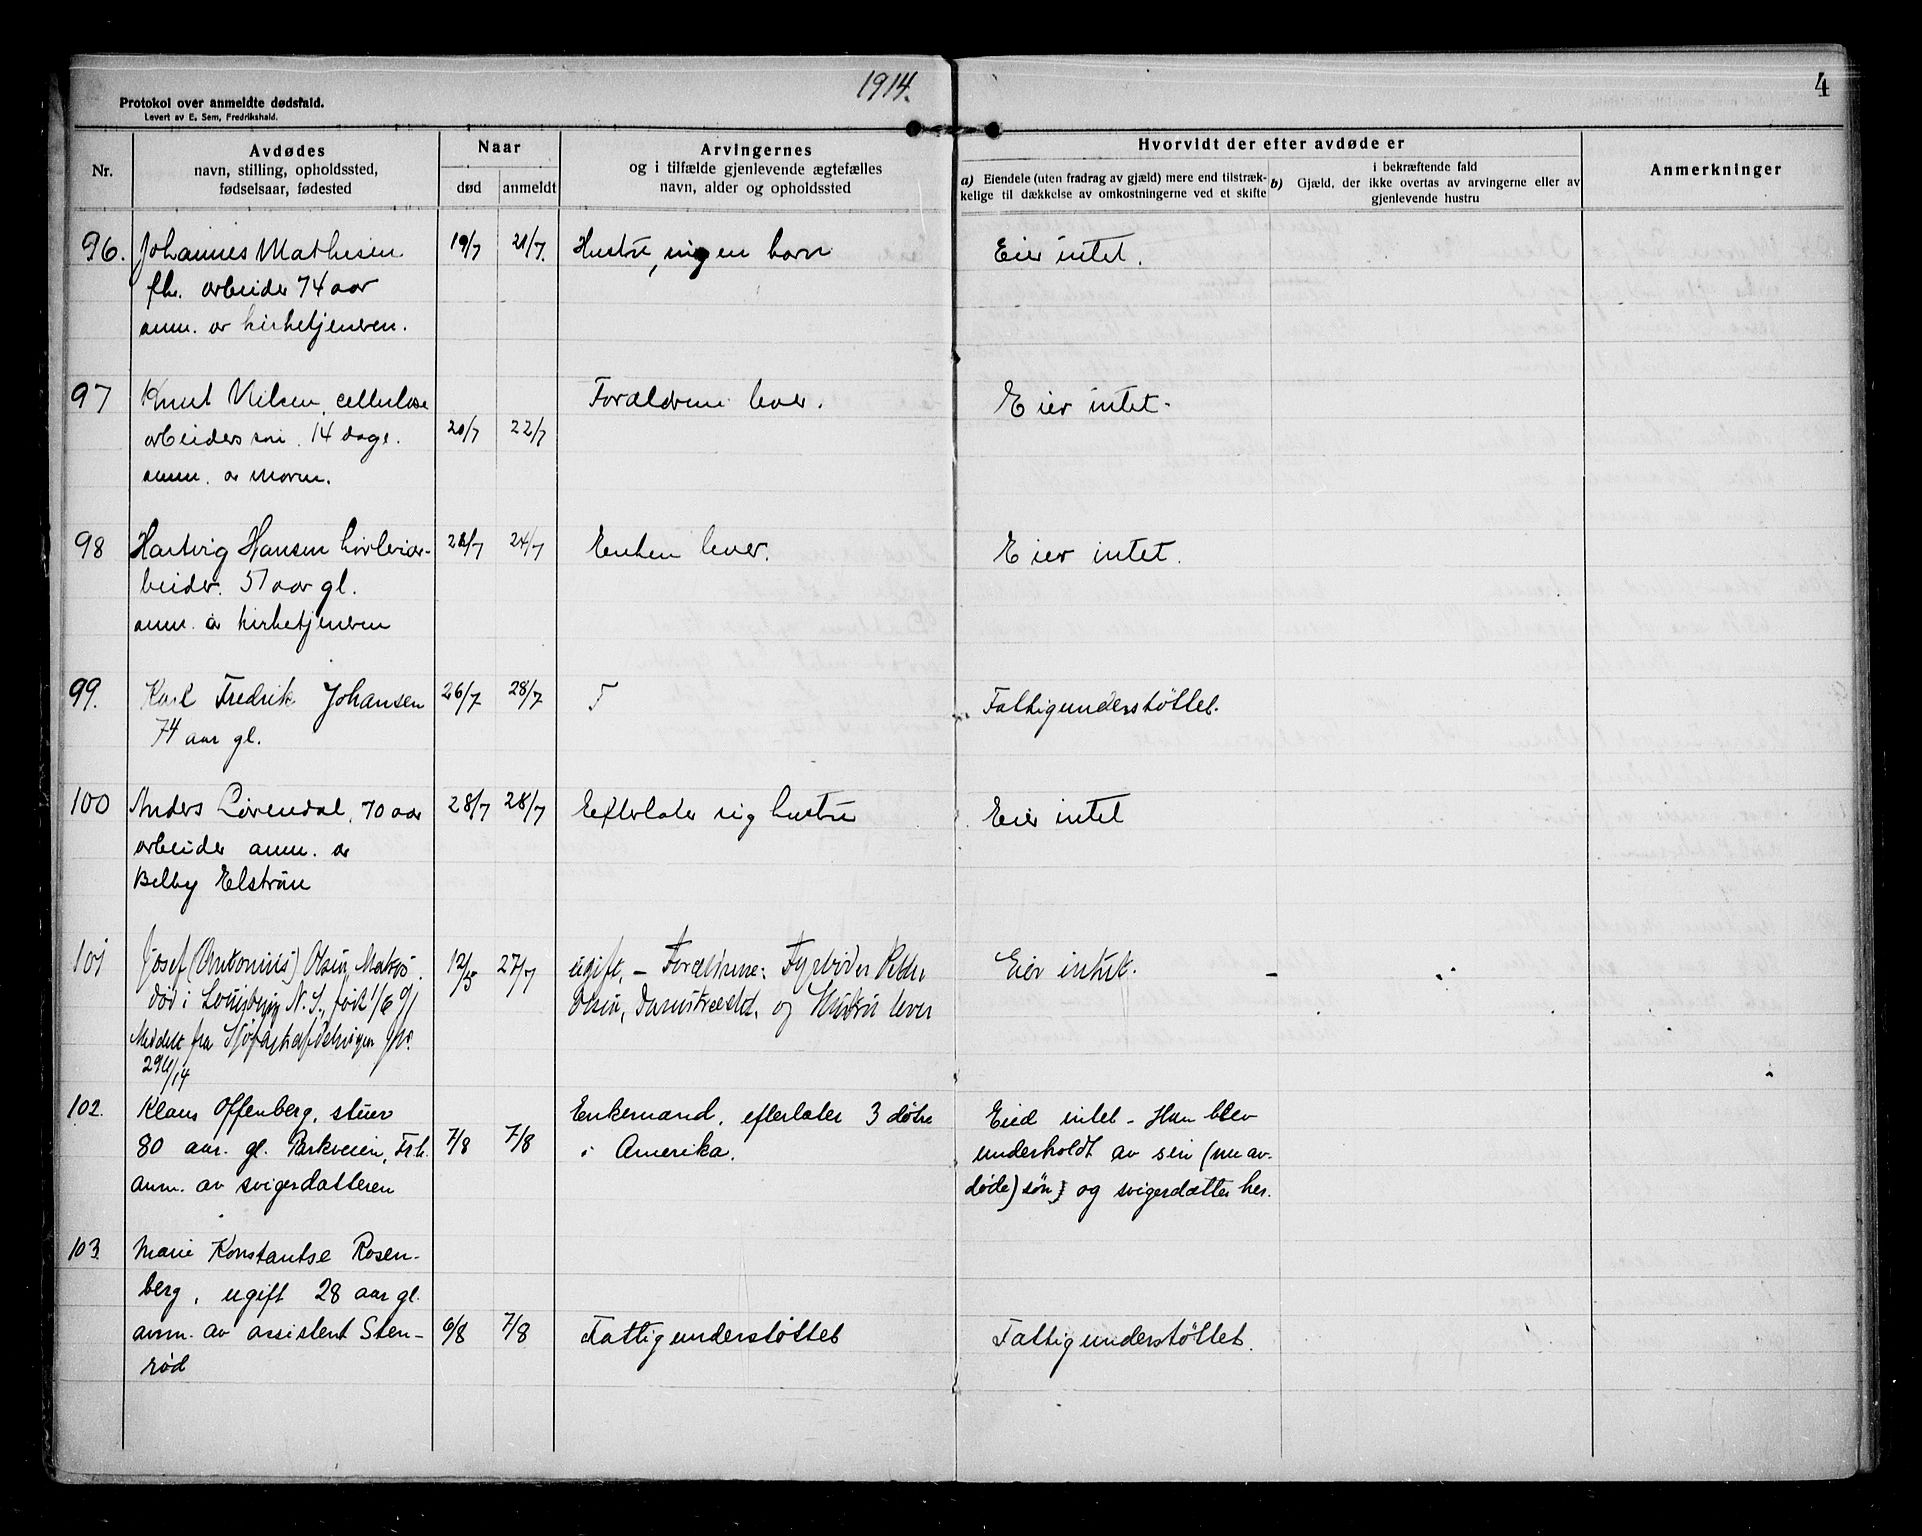 1914.
4
Protokol over anmeldte dødsfald.
Levert av E. Sem, Fredrikshald.
Nr.
Avdødes
navn, stilling, opholdssted,
fødselsaar, fødested
Naar
død
anmeldt
Arvingernes
og i tilfælde gjenlevende ægtefælles
navn, alder og opholdssted
Hvorvidt der efter avdøde er
a) Eiendele (uten fradrag av gjæld) mere end tilstræk-
kelige til dækkelse av omkostningerne ved et skifte
i bekræftende fald
b) Gjæld, der ikke overtas av arvingerne eller av
gjenlevende hustru
Anmerkninger
96. Johannes Mathisen 19/7 21/7. Hustru, ingen barn Eier intet.
fh. arbeider 74 aar
anm. av kirketjeneren.
97 Knut Nilsen, cellulose Forældrene lever. Eier intet.
arbeiders søn. 14 dage. 20/7 22/7
anm. av moren.
98 Hartvig Hansen høvleriar- 24/7 Enken lever. Eier intet.
beider. 57 aar gl.
anm. av kirketjeneren
99. Karl Fredrik Johansen 26/7 28/7 F Fattigunderstøttet.
74 aar gl.
100 Anders Lövendal, 70 aar 28/7 28/7 Efterlater sig hustru Eier intet
arbeider anm. av
Belby Elstrøm
101 Josef (Antonius) Olsen, Matros 12/5 27/7 ugift. – Forældrene: Fyrbøder Peder Eier intet. –
død i Louisburg N.S., født 1/6 91 Olsen, Damskredet. og Hustru lever
Meddelt fra Sjøfartsafdelingen
29/6/14
102. Klaus Offenberg, stuer Enkemand, efterlater 3 døtre Eied intet – Han blev
80 aar. gl. Parkveien, Fr.h. 7/8 7/8 i Amerika. underholdt av sin (nu av-
anm. av svigerdatteren døde) søn og svigerdatter her.
103. Marie Konstantse Rosen-
berg, ugift 28 aar gl.
anm. av assistent Sten- 6/8 7/8 Fattigunderstøttet Fattigunderstøttet.
rød